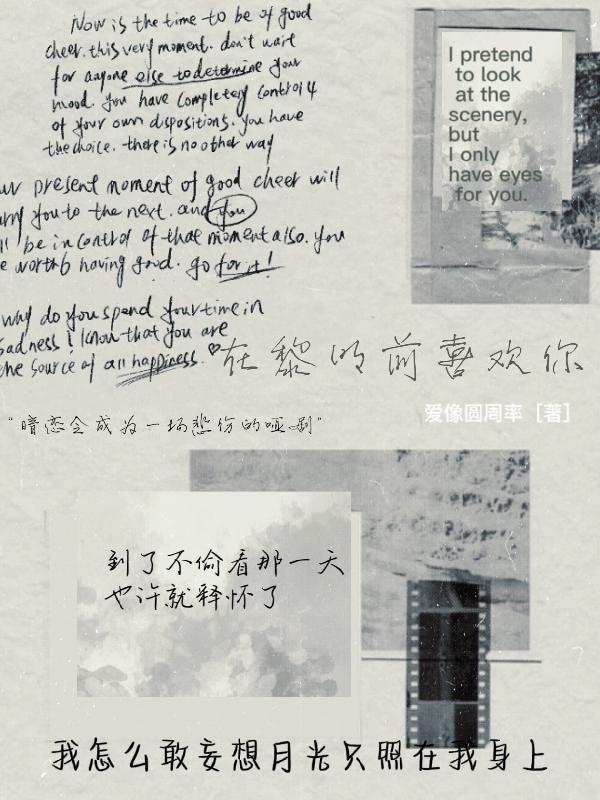 Now is the time to be of good
cheer. this very moment. don't wait
for anyone else to determine your
mood. you have completely control
of your own dispositions. you have
the choice. there is no other way
ur present moment of good cheer will
arry you to the next. and you
ll be in control of that moment also. you
e worth having good. go for it!
why do you spend your time in
sadness! know that you are
the source of all happiness.
I pretend
to look
at the
scenery,
but
I only
have eyes
for you.
在黎明前喜欢你
爱像圆周率［著］
"暗恋会成为一场悲伤的哑剧"
到了不偷看那一天
也许就释怀了
我怎么敢妄想月光只照在我身上